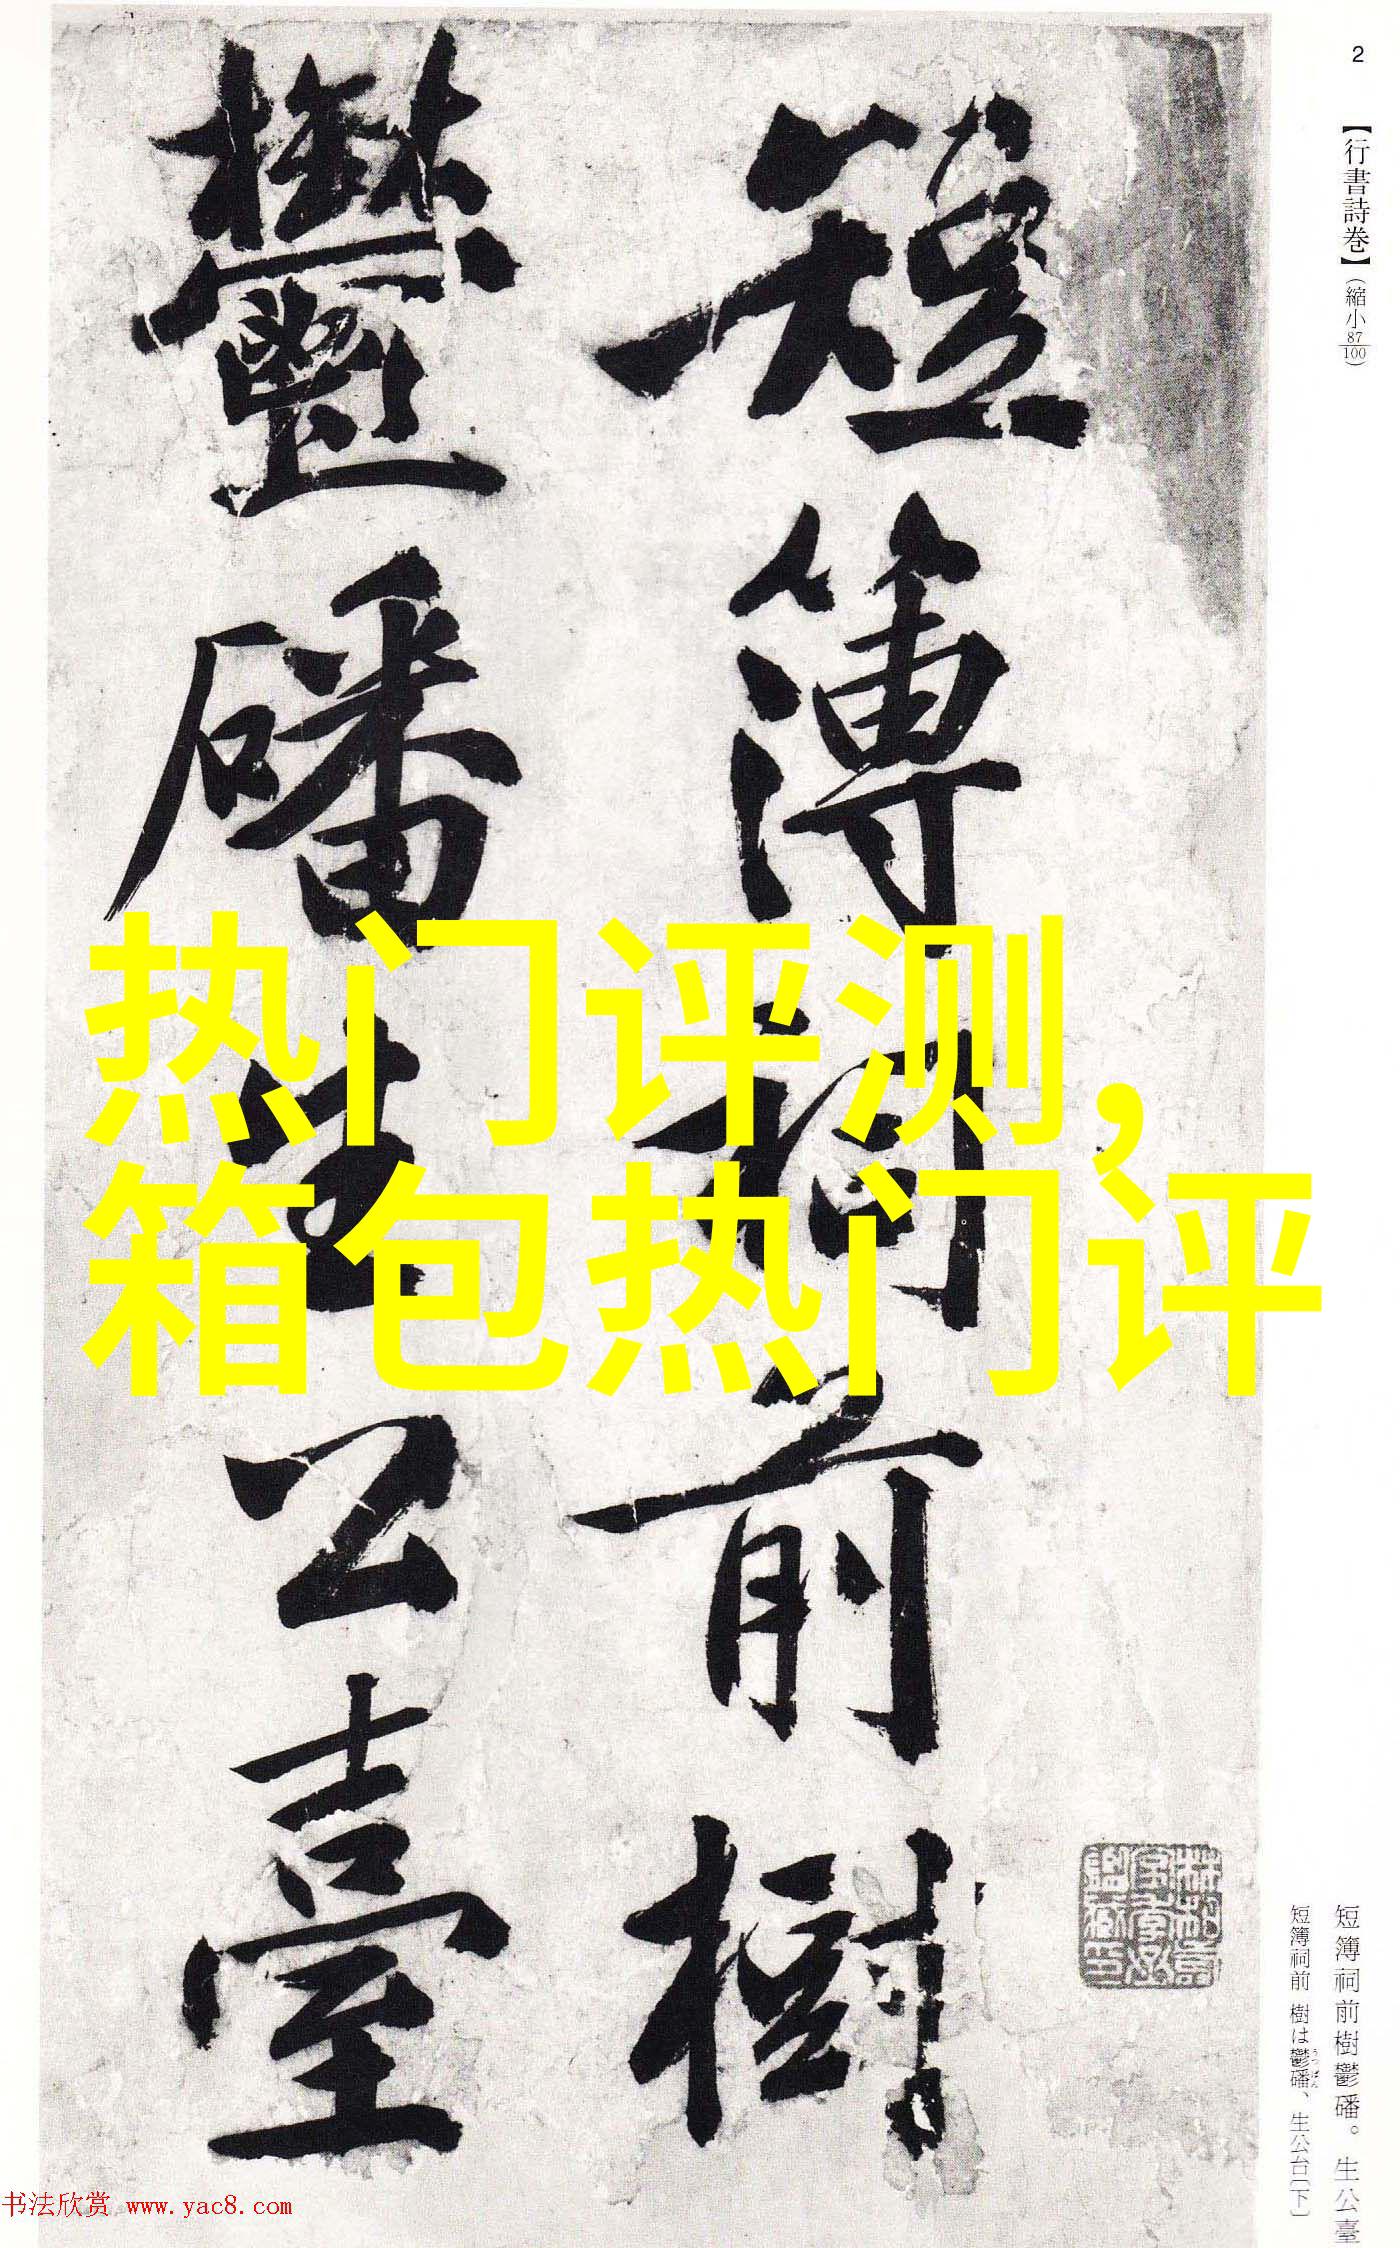 2
【行書詩巻】(縮小87/100)
短簿祠前樹
鬱磻生公臺
热门评测,
箱包热门评
短簿祠前樹鬱磻。生公臺
短簿祠前 樹は鬱磻、生公台〔下〕
うっぱん
书法欣赏 www.yac8.com